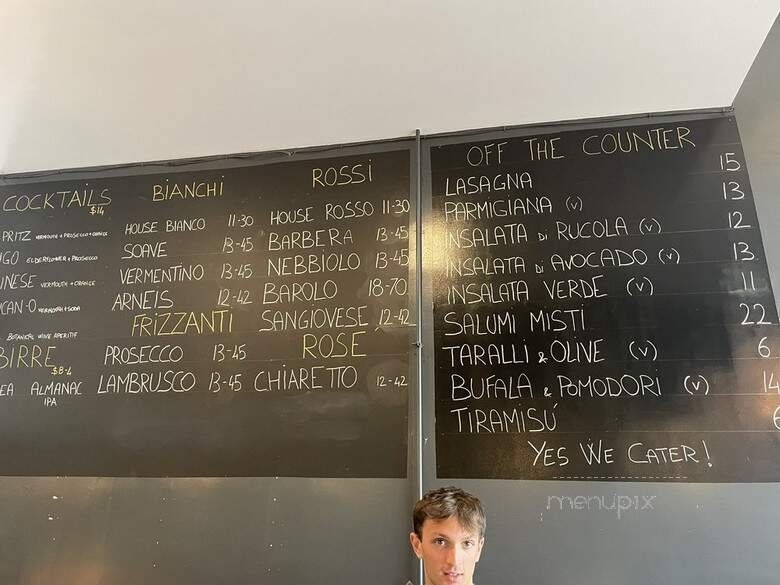 COCKTAILS
$14
PRITZ VERMOUTH + PROSECCO + ORANGE
GO ELDERFLOWER + PROSECCO
NESE VERMOUTH + ORANGE
CAN-O VERMOUTH + SODA
BOTANICAL WINE APERITIF
BIRRE
$8-4
EA ALMANAC
IPA
BIANCHI
HOUSE BIANCO 11-30
SOAVE 13-45
VERMENTINO 13-45
ARNEIS 12-42
FRIZZANTI
PROSECCO 13-45
LAMBRUSCO 13-45
ROSSI
HOUSE ROSSO 11-30
BARBERA 13-45
NEBBIOLO 13-45
BAROLO 18-70
SANGIOVESE 12-42
ROSE
CHIARETTO 12-42
OFF THE COUNTER
LASAGNA 15
PARMIGIANA (V) 13
INSALATA DI RUCOLA (V) 12
INSALATA DI AVOCADO (V) 13
INSALATA VERDE (V) 11
SALUMI MISTI 22
TARALLI & OLIVE (V) 6
BUFALA & POMODORI (V) 14
TIRAMISÚ 6
YES WE CATER!
menupix